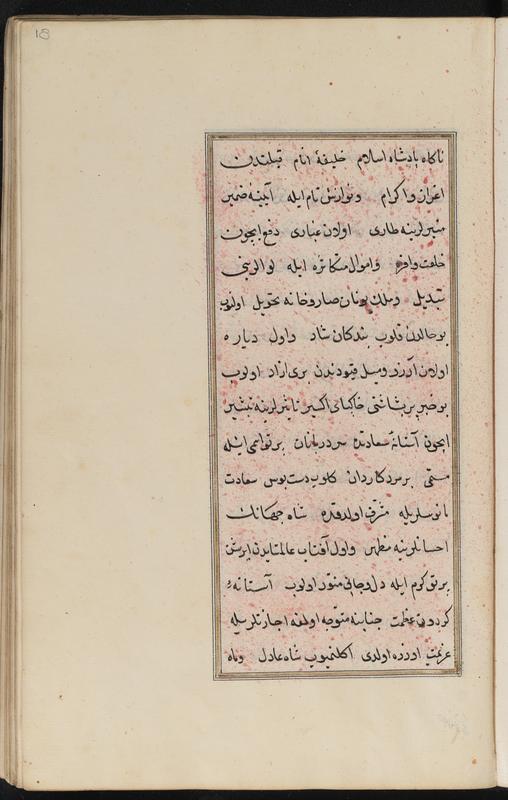 18
ناكاه پادشاه اسلام خليفۀ انام قبلتدن
اعزاز واكرام ونوازش تام ايله آيينۀ ضمير
منيرلرينه طارى اولان غبارى دفع ايچون
خلعت وافره واموال متكاثره ايله لوالرينى
تبديل وملك يونان صاروخانه تحويل اولنوب
بو حالدن قلوب بندكان شاد واول دياره
اولان آرزو وميل قيودندن برى ازاد اولوب
بو خبر پر بشاشتى خاكپاى اكسير تاثيرلرينه تبشير
ايچون آستانۀ سعادتده سردربانان پرتوامى ايله
مسمى بر مرد كاردان كلوب دست بوس سعادت
مانوسلريله مشرف اولدقده شاه جهانك
احسانلرينه مظهر واول آفتاب عالمتابدن ايرشن
پرتو كرم ايله دل وجانى منور اولوب آستانۀ
كردون عظمت جنابنه متوجه اولمغه اجازتلريله
عزيمت اوزره اولدى اكلنميوب شاه عادل وماه